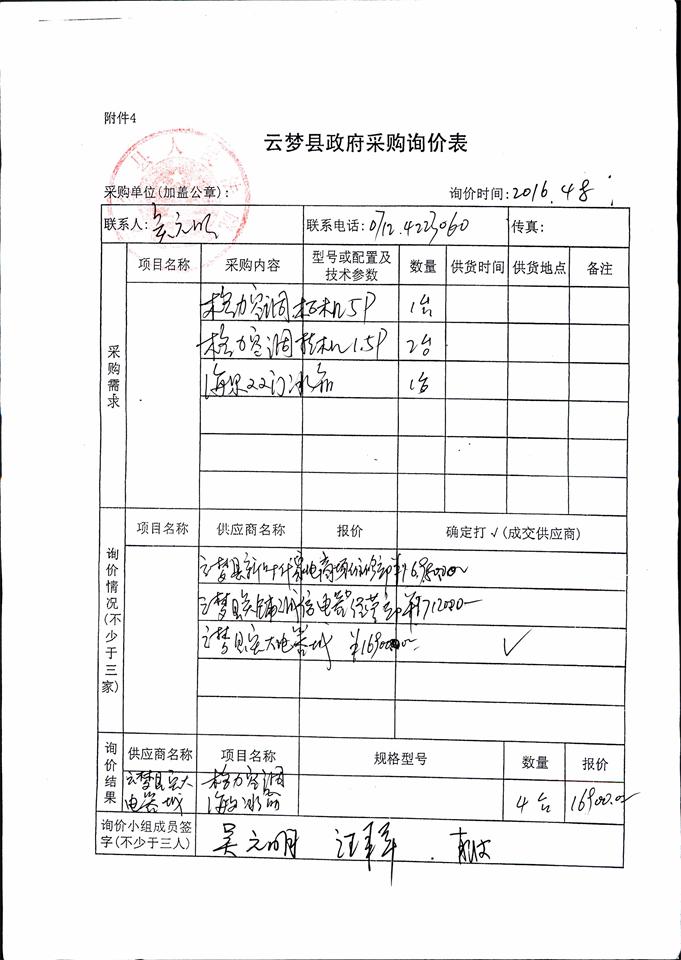 附件4
云梦县政府采购询价表
采购单位(加盖公章): 询价时间:2016.4.8
联系人:吴元明 联系电话:0712.4223060 传真:
采购需求
项目名称 采购内容 型号或配置及技术参数 数量 供货时间 供货地点 备注
格力空调 柜机5P 1台
格力空调 挂机1.5P 2台
海尔双门冰箱 1台
询价情况(不少于三家)
项目名称 供应商名称 报价 确定打√(成交供应商)
云梦县
云梦县 电器经营部 ¥17120.00
云梦县宏大电器城 ¥16900.00 √
询价结果
供应商名称 项目名称 规格型号 数量 报价
云梦县宏大电器城 格力空调 海尔冰箱 4台 16900.00
询价小组成员签字(不少于三人) 吴元明